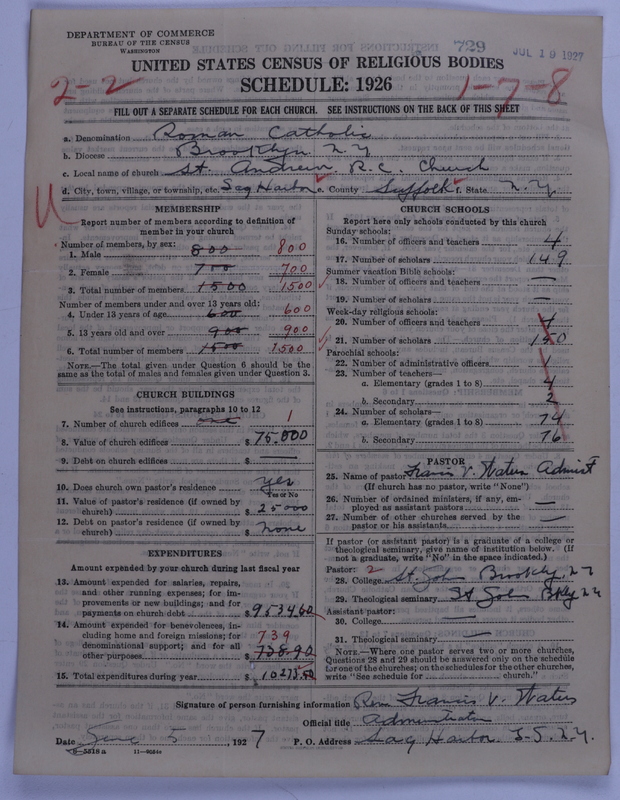 DEPARTMENT OF COMMERCE
BUREAU OF THE CENSUS
WASHINGTON
729
JUL 19 1927
UNITED STATES CENSUS OF RELIGIOUS BODIES
SCHEDULE: 1926
2-2
1-7-8
FILL OUT A SEPARATE SCHEDULE FOR EACH CHURCH. SEE INSTRUCTIONS ON THE BACK OF THIS SHEET
a. Denomination Roman Catholic
b. Diocese Brooklyn N.Y
c. Local name of church St. Andrew R.C. Church
d. City, town, village, or township, etc. Sag Harbor e. County Suffolk f. State N.Y.
MEMBERSHIP
Report number of members according to definition of member in your church
Number of members, by sex:
1. Male 800 800
2. Female 700 700
3. Total number of members 1500 1500
Number of members under and over 13 years old:
4. Under 13 years of age 600 600
5. 13 years old and over 900 900
6. Total number of members 1500 1500
NOTE.—The total given under Question 6 should be the same as the total of males and females given under Question 3.
CHURCH BUILDINGS
See instructions, paragraphs 10 to 12
7. Number of church edifices one 1
8. Value of church edifices $ 75.000
9. Debt on church edifices $ —
10. Does church own pastor's residence yes
Yes or No
11. Value of pastor's residence (if owned by church) $ 25000
12. Debt on pastor's residence (if owned by church) $ none
EXPENDITURES
Amount expended by your church during last fiscal year
13. Amount expended for salaries, repairs, and other running expenses; for improvements or new buildings; and for payments on church debt $ 9534.60
14. Amount expended for benevolences, including home and foreign missions; for denominational support; and for all other purposes $ 738.90 739
15. Total expenditures during year $ 10273.50
CHURCH SCHOOLS
Report here only schools conducted by this church
Sunday schools:
16. Number of officers and teachers 4
17. Number of scholars 149
Summer vacation Bible schools:
18. Number of officers and teachers —
19. Number of scholars —
Week-day religious schools:
20. Number of officers and teachers 4
21. Number of scholars 150
Parochial schools:
22. Number of administrative officers 1
23. Number of teachers—
a. Elementary (grades 1 to 8) 4
b. Secondary 2
24. Number of scholars—
a. Elementary (grades 1 to 8) 74
b. Secondary 76
PASTOR
25. Name of pastor Francis V. Waters Administ
(If church has no pastor, write "None")
26. Number of ordained ministers, if any, employed as assistant pastors —
27. Number of other churches served by the pastor or his assistants —
If pastor (or assistant pastor) is a graduate of a college or theological seminary, give name of institution below. (If not a graduate, write "No" in the space indicated.)
Pastor: 2
28. College St. John Brookly, N.Y
29. Theological seminary St John Bkly N.Y
Assistant pastor:
30. College —
31. Theological seminary —
NOTE.—Where one pastor serves two or more churches, Questions 28 and 29 should be answered only on the schedule for one of the churches; on the schedules for the other churches, write "See schedule for ........ church."
Signature of person furnishing information Rev. Francis V. Waters
Official title Administrator
Date June 5, 1927 P. O. Address Sag Harbor N.Y.
8—5318 a 11—9084